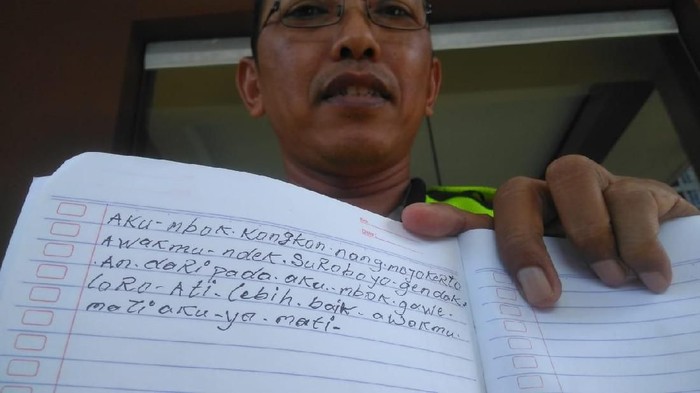 AKU-mbok.Kongkon.nang.mojokerto
AwAKmu-ndek.SuRoboyo.gendak.
.An.daRipada.aku.mbok.gawe.
loRo-Ati-lebih.baik.awakmu.
mati aku-ya.mati-